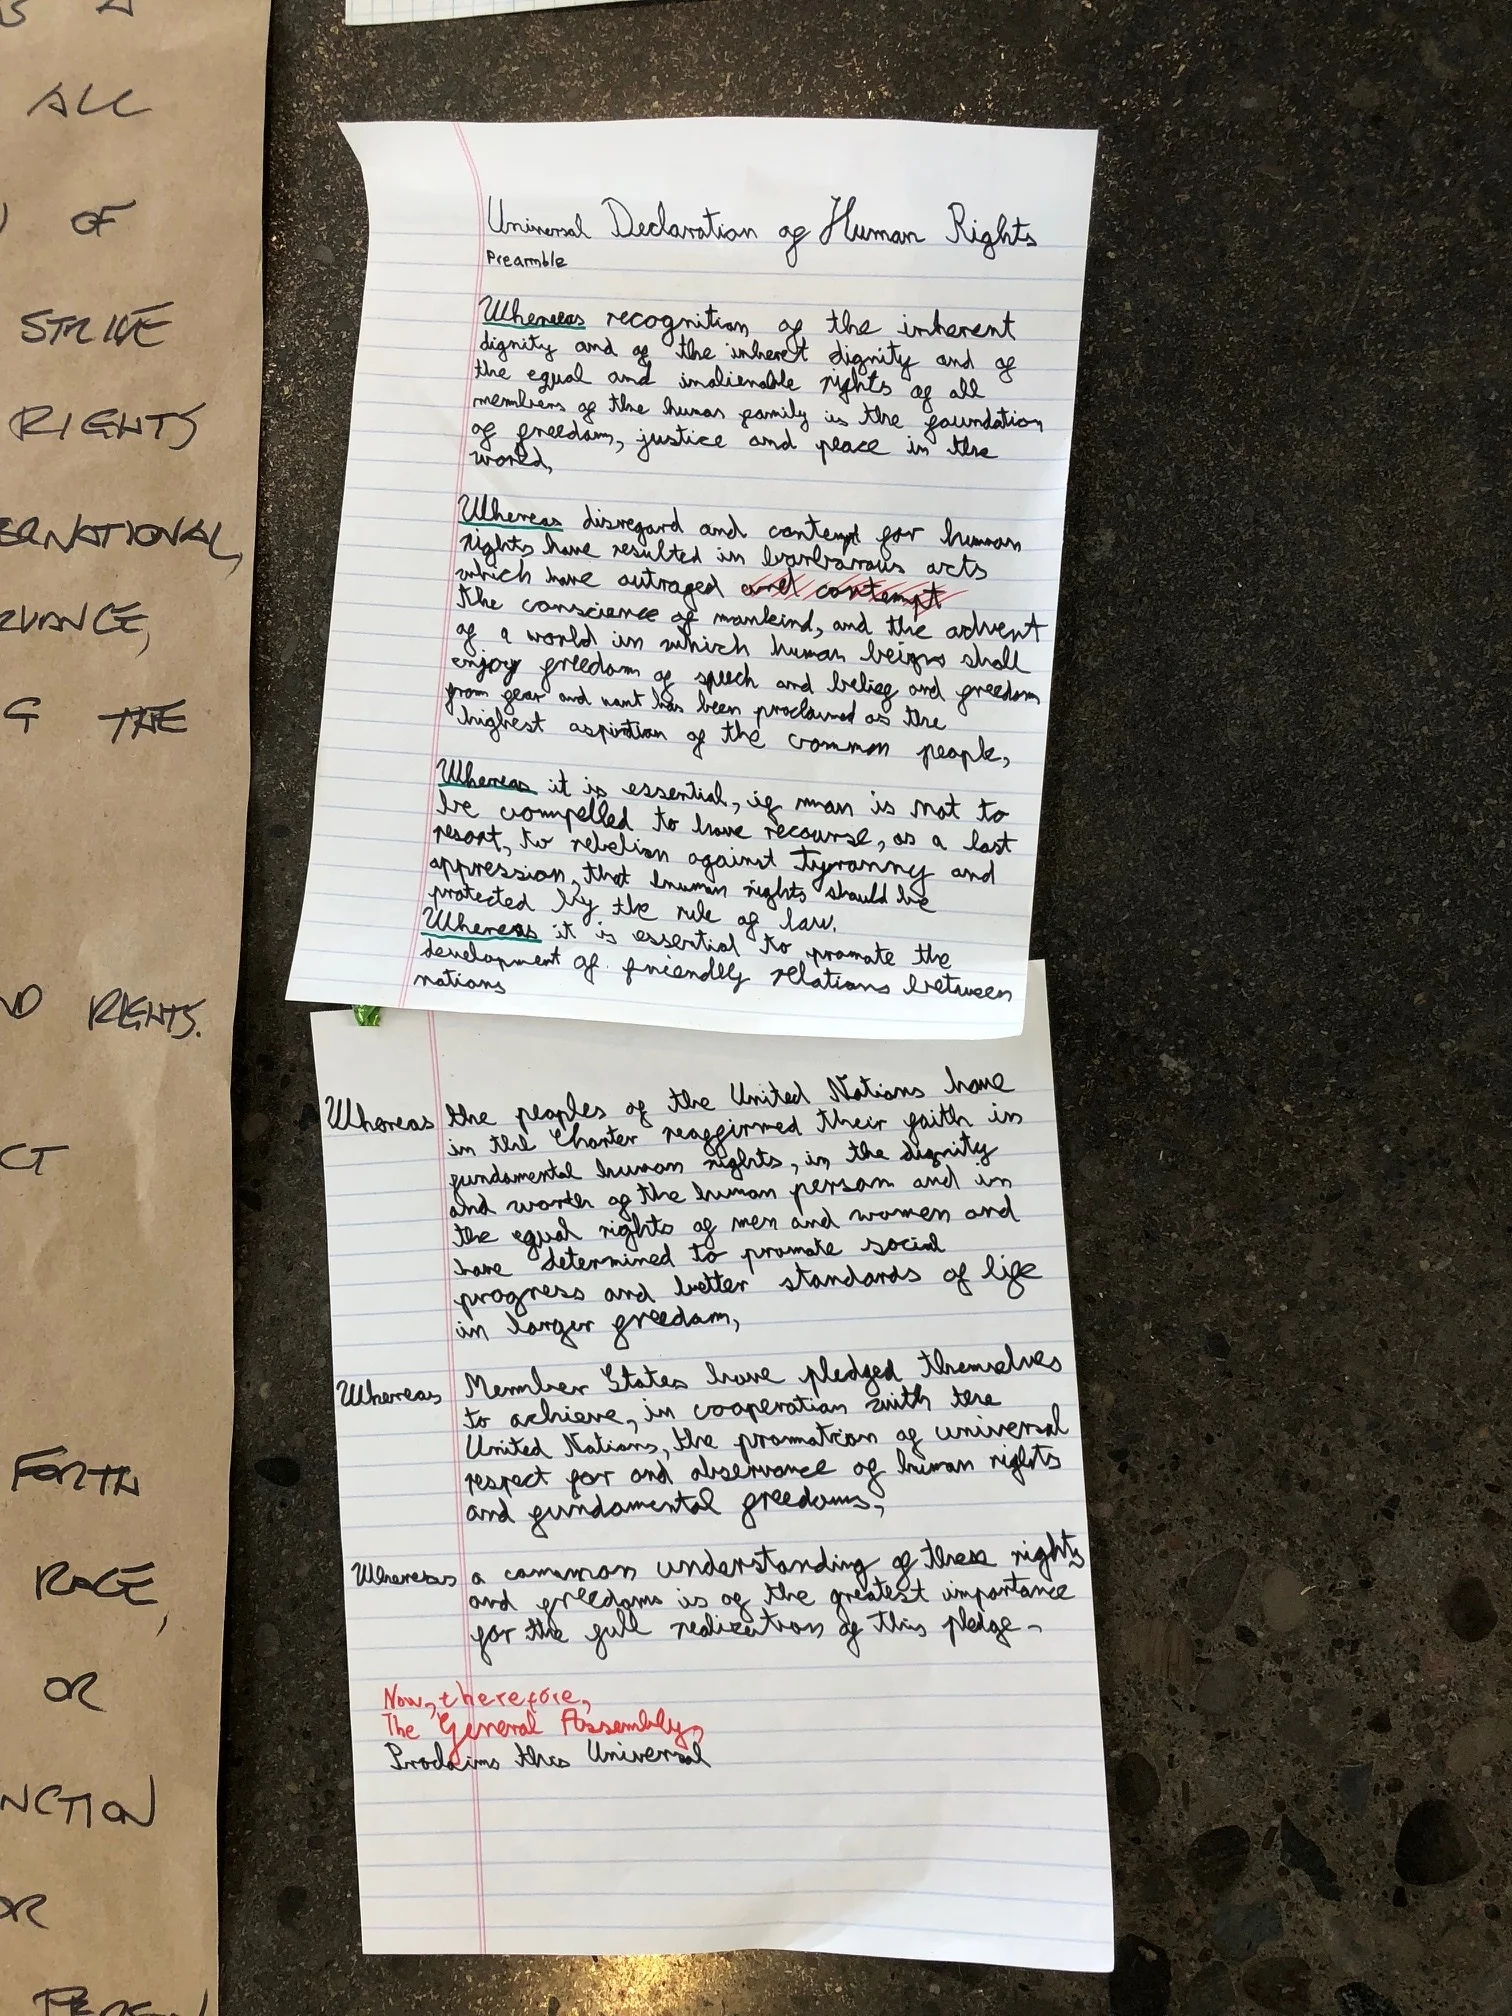 ALL
OF
STRIVE
RIGHTS
ERNATIONAL,
RVANCE,
G THE
ND RIGHTS.
CT
FORTH
RACE,
OR
NCTION
OR
PERSON
Universal Declaration of Human Rights
Preamble
Whereas recognition of the inherent
dignity and of the inheret dignity and of
the equal and inalienable rights of all
members of the human family is the foundation
of freedom, justice and peace in the
world,
Whereas disregard and contempt for human
rights have resulted in barbarous acts
which have outraged and contempt
the conscience of mankind, and the advent
of a world in which human beings shall
enjoy freedom of speech and belief and freedom
from fear and want has been proclaimed as the
highest aspiration of the common people,
Whereas it is essential, if man is not to
be compelled to have recourse, as a last
resort, to rebelion against Tyranny and
oppression, that human rights should be
protected by the rule of law.
Whereas it is essential to promote the
development of friendly relations between
nations
Whereas the peoples of the United Nations have
in the Charter reaffirmed their faith in
fundamental human rights, in the dignity
and worth of the human person and in
the equal rights of men and women and
have determined to promote social
progress and better standards of life
in larger freedom,
Whereas Member States have pledged themselves
to achieve, in cooperation with the
United Nations, the promotion of universal
respect for and observance of human rights
and fundamental freedoms,
Whereas a common understanding of these rights
and freedoms is of the greatest importance
for the full realization of this pledge,
Now, therefore,
The General Assembly,
Proclaims this Universal